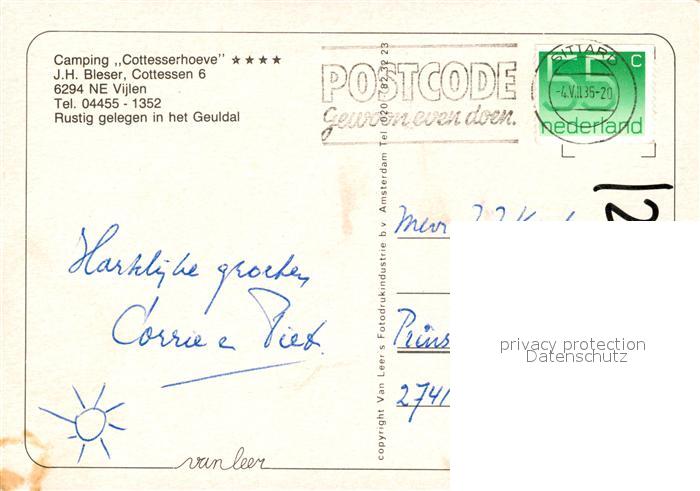 Camping „Cottesserhoeve” ★★★★
J.H. Bleser, Cottessen 6
6294 NE Vijlen
Tel. 04455 - 1352
Rustig gelegen in het Geuldal
POSTCODE
Gewoon even doen.
SITTARD
-4.VIII.86-20
55 c
nederland
copyright Van Leer's Fotodrukindustrie b.v. Amsterdam Tel. 020 - 82 32 23
12
Mevr
Prins
2741
Hartelijke groeten
Corrie en Piet.
van leer
privacy protection
Datenschutz